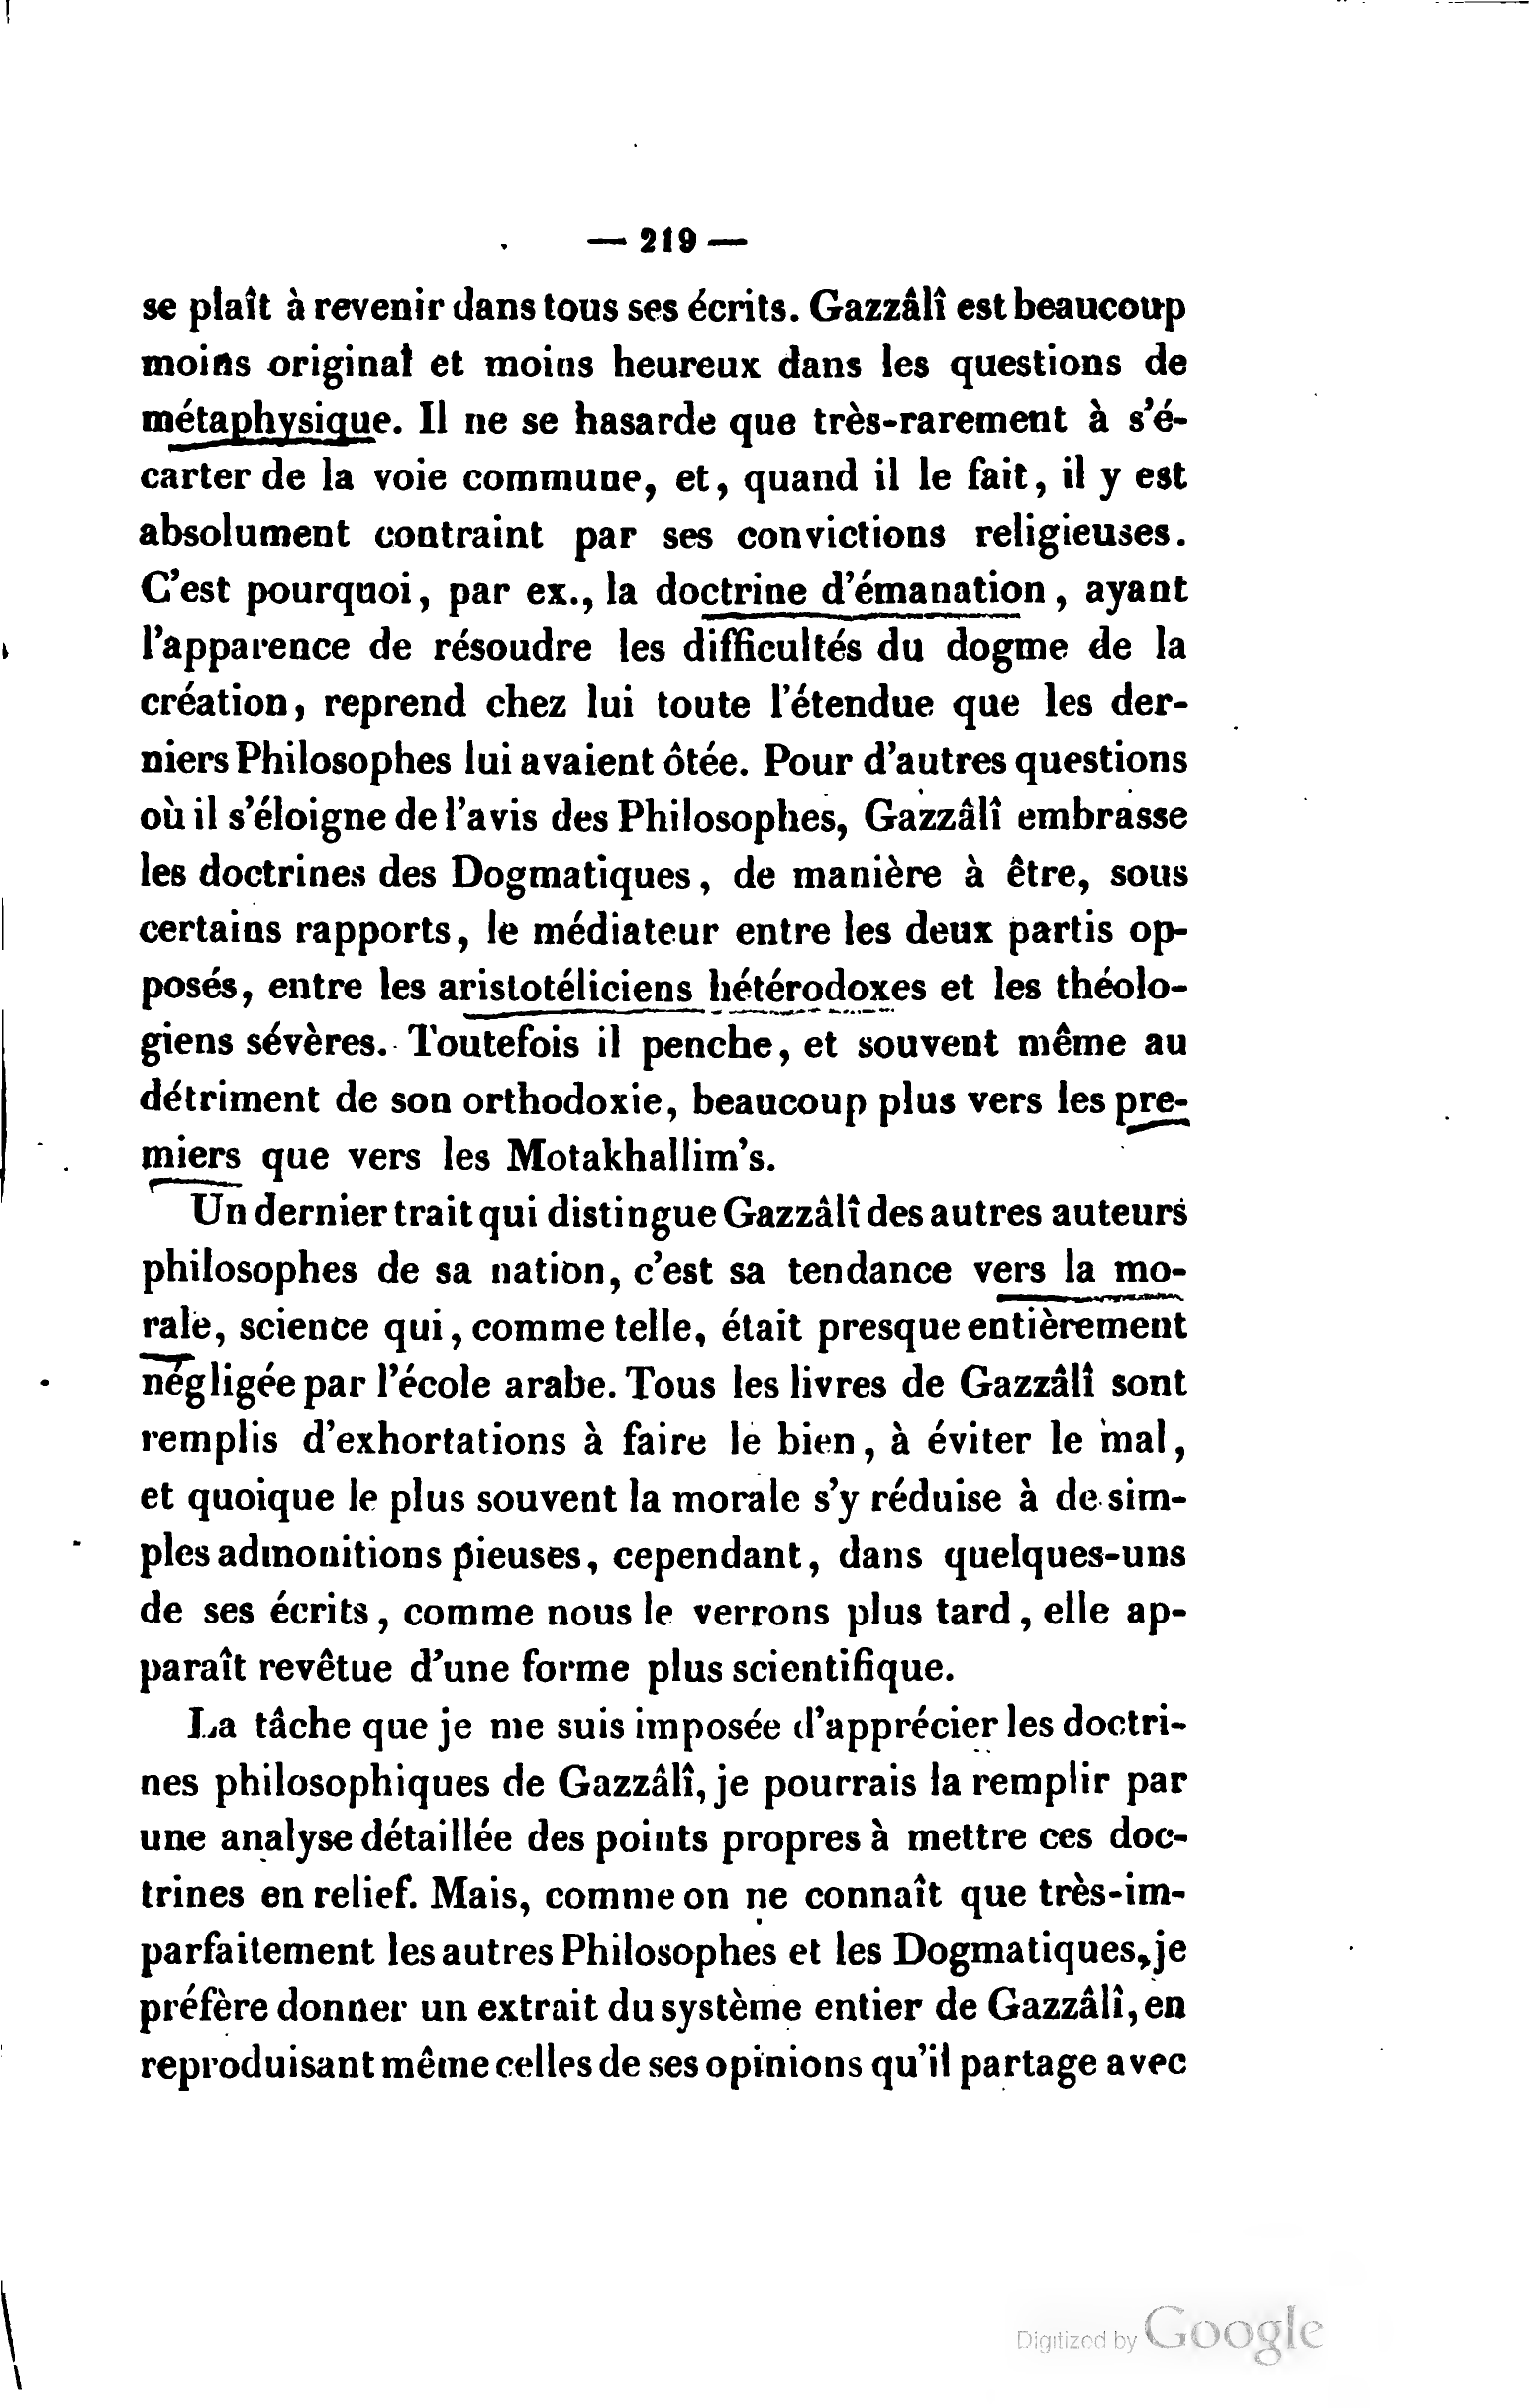 — 219 —
se plaît à revenir dans tous ses écrits. Gazzâlî est beaucoup
moins original et moins heureux dans les questions de
métaphysique. Il ne se hasarde que très-rarement à s'é-
carter de la voie commune, et, quand il le fait, il y est
absolument contraint par ses convictions religieuses.
C'est pourquoi, par ex., la doctrine d'émanation, ayant
l'apparence de résoudre les difficultés du dogme de la
création, reprend chez lui toute l'étendue que les der-
niers Philosophes lui avaient ôtée. Pour d'autres questions
où il s'éloigne de l'avis des Philosophes, Gazzâlî embrasse
les doctrines des Dogmatiques, de manière à être, sous
certains rapports, le médiateur entre les deux partis op-
posés, entre les aristotéliciens hétérodoxes et les théolo-
giens sévères. Toutefois il penche, et souvent même au
détriment de son orthodoxie, beaucoup plus vers les pre-
miers que vers les Motakhallim's.
Un dernier trait qui distingue Gazzâlî des autres auteurs
philosophes de sa nation, c'est sa tendance vers la mo-
rale, science qui, comme telle, était presque entièrement
négligée par l'école arabe. Tous les livres de Gazzâlî sont
remplis d'exhortations à faire le bien, à éviter le mal,
et quoique le plus souvent la morale s'y réduise à de sim-
ples admonitions pieuses, cependant, dans quelques-uns
de ses écrits, comme nous le verrons plus tard, elle ap-
paraît revêtue d'une forme plus scientifique.
La tâche que je me suis imposée d'apprécier les doctri-
nes philosophiques de Gazzâlî, je pourrais la remplir par
une analyse détaillée des points propres à mettre ces doc-
trines en relief. Mais, comme on ne connaît que très-im-
parfaitement les autres Philosophes et les Dogmatiques, je
préfère donner un extrait du système entier de Gazzâlî, en
reproduisant même celles de ses opinions qu'il partage avec
Digitized by Google